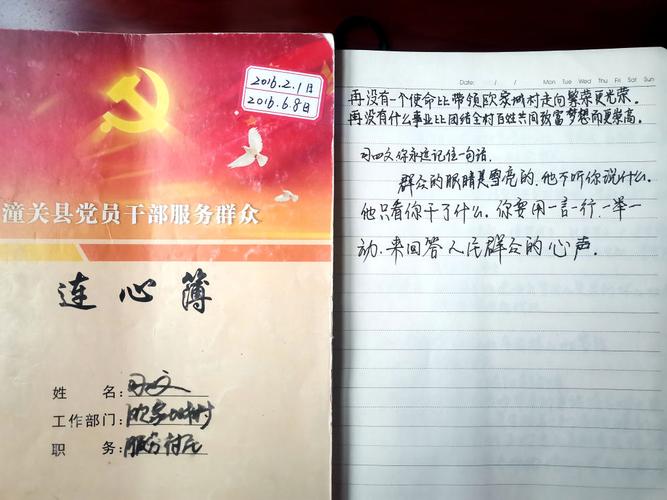 2016.2.1日
2016.6.8日
潼关县党员干部服务群众
连心簿
姓 名:司四文
工作部门:欧家城村
职 务:服务村民
Date: / /
Mon Tue Wed Thu Fri Sat Sun
再没有一个使命比带领欧家城村走向繁荣更光荣。
再没有什么事业比团结全村百姓共同致富梦想而更崇高。
司四文你永远记住一句话。
群众的眼睛是雪亮的.他不听你说什么。
他只看你干了什么.你要用一言一行.一举一
动.来回答人民群众的心声。